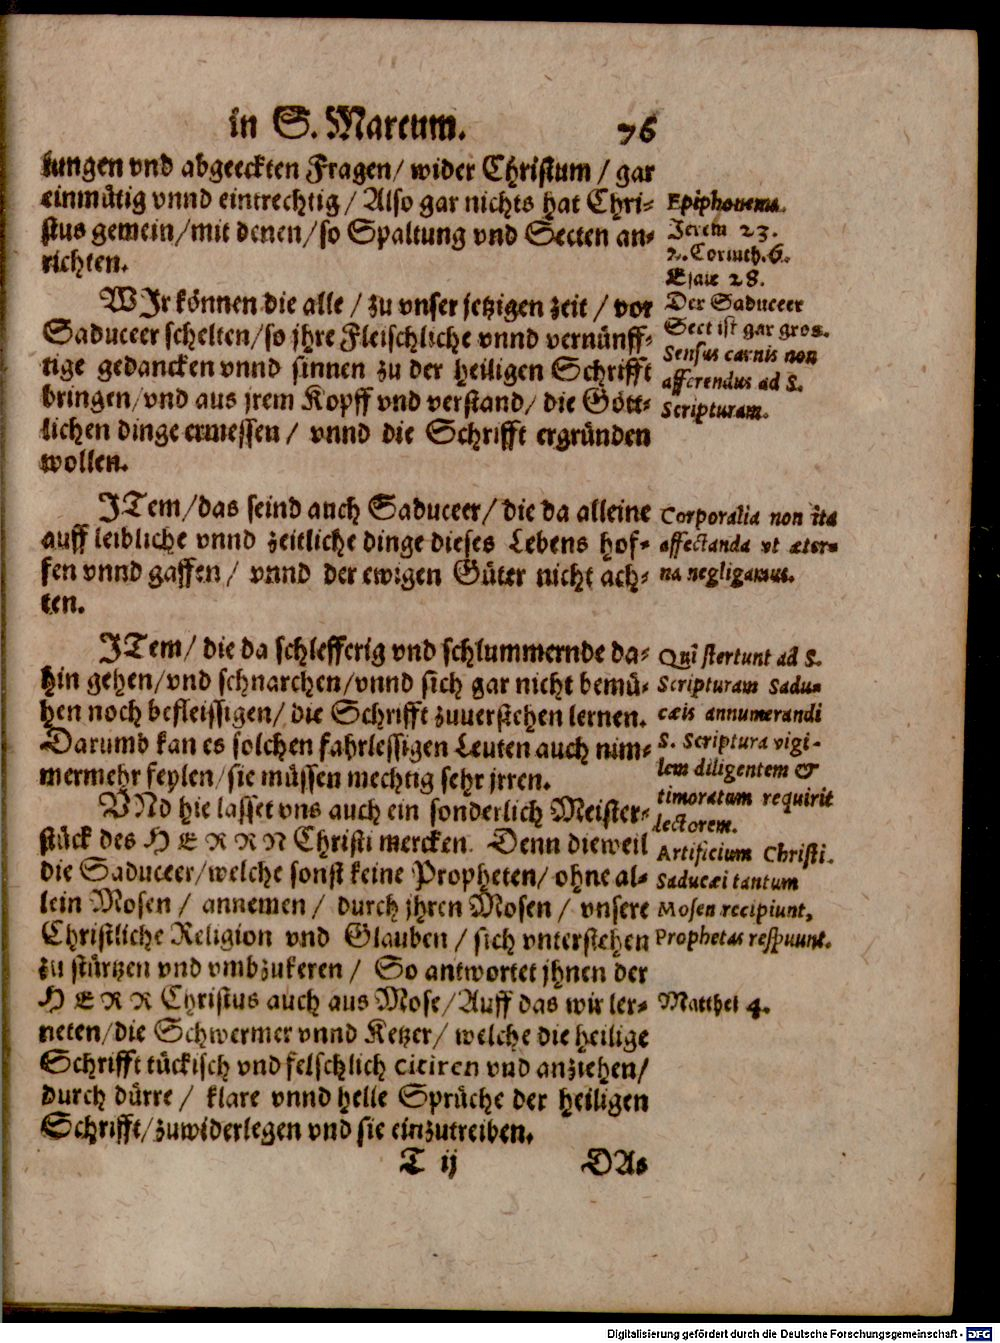 in S. Marcum. 76
sungen vnd abgeeckten Fragen/ wider Christum / gar
einmütig vnnd eintrechtig / Also gar nichts hat Chri-
stus gemein/mit denen/so Spaltung vnd Secten an-
richten.
WJr können die alle / zu vnser jetzigen zeit / vor
Saduceer schelten/so jhre Fleischliche vnnd vernünff-
tige gedancken vnnd sinnen zu der heiligen Schrifft
bringen/vnd aus jrem Kopff vnd verstand/ die Gött-
lichen dinge ermessen / vnnd die Schrifft ergründen
wollen.
JTem/das seind auch Saduceer/ die da alleine
auff leibliche vnnd zeitliche dinge dieses Lebens hof-
fen vnnd gaffen / vnnd der ewigen Güter nicht ach-
ten.
JTem/ die da schlefferig vnd schlummernde da-
hin gehen/vnd schnarchen/vnnd sich gar nicht bemü-
hen noch befleissigen/ die Schrifft zuuerstehen lernen.
Darumb kan es solchen fahrlessigen Leuten auch nim-
mermehr feylen/sie müssen mechtig sehr jrren.
VNd hie lasset vns auch ein sonderlich Meister-
stück des HERRN Christi mercken. Denn dieweil
die Saduceer/welche sonst keine Propheten/ ohne al-
lein Mosen / annemen / durch jhren Mosen / vnsere
Christliche Religion vnd Glauben / sich vnterstehen
zu stürtzen vnd vmbzukeren / So antwortet jhnen der
HERR Christus auch aus Mose/Auff das wir ler-
neten/die Schwermer vnnd Ketzer/ welche die heilige
Schrifft tückisch vnd felschlich citiren vnd anziehen/
durch dürre / klare vnnd helle Sprüche der heiligen
Schrifft/zuwiderlegen vnd sie einzutreiben.
T ij DAs
Epiphonema.
Jerem 23.
2. Corinth. 6.
Esaie 28.
Der Saduceer
Sect ist gar gros.
Sensus carnis non
afferendus ad S.
Scripturam.
Corporalia non ita
affectanda vt æter-
na negligamus.
Qui stertunt ad S.
Scripturam Sadu-
cæis annumerandi
S. Scriptura vigi-
lem diligentem &
timoratum requirit
lectorem.
Artificium Christi.
Saducæi tantum
Mosen recipiunt,
Prophetas respuunt.
Matthei 4.
Digitalisierung gefördert durch die Deutsche Forschungsgemeinschaft - DFG